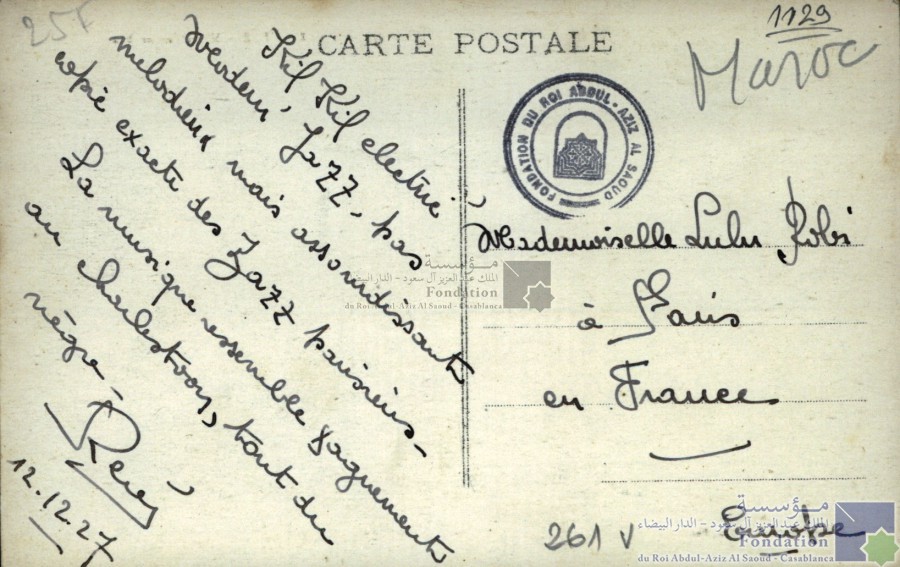 25F
1129
Maroc
CARTE POSTALE
FONDATION DU ROI ABDUL-AZIZ AL SAOUD
Kil Kil electric
Modern' Jazz, pas
melodieux mais assourdissant
copie exacte des Jazz parisiens.
La musique ressemble vaguement
au charleston, tout du
nègre.
René
12.12.27
Mademoiselle Lulu Robi
à Paris
en France
Europe
261 v
مؤسسة
الملك عبد العزيز آل سعود - الدار البيضاء
Fondation
du Roi Abdul-Aziz Al Saoud - Casablanca
مؤسسة
الملك عبد العزيز آل سعود - الدار البيضاء
Fondation
du Roi Abdul-Aziz Al Saoud - Casablanca